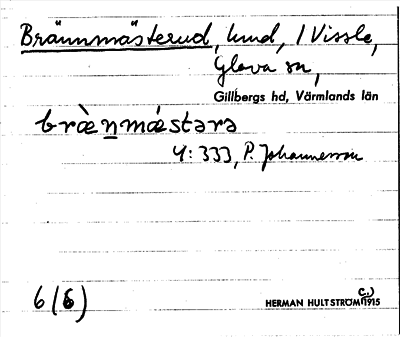 Brännmästerud, lund, i Vissle,
Glava sn,
Gillbergs hd, Värmlands län
bræ̀nmǽstərə
4:333, P. Johannesson
6 (6)
C.)
HERMAN HULTSTRÖM 1915